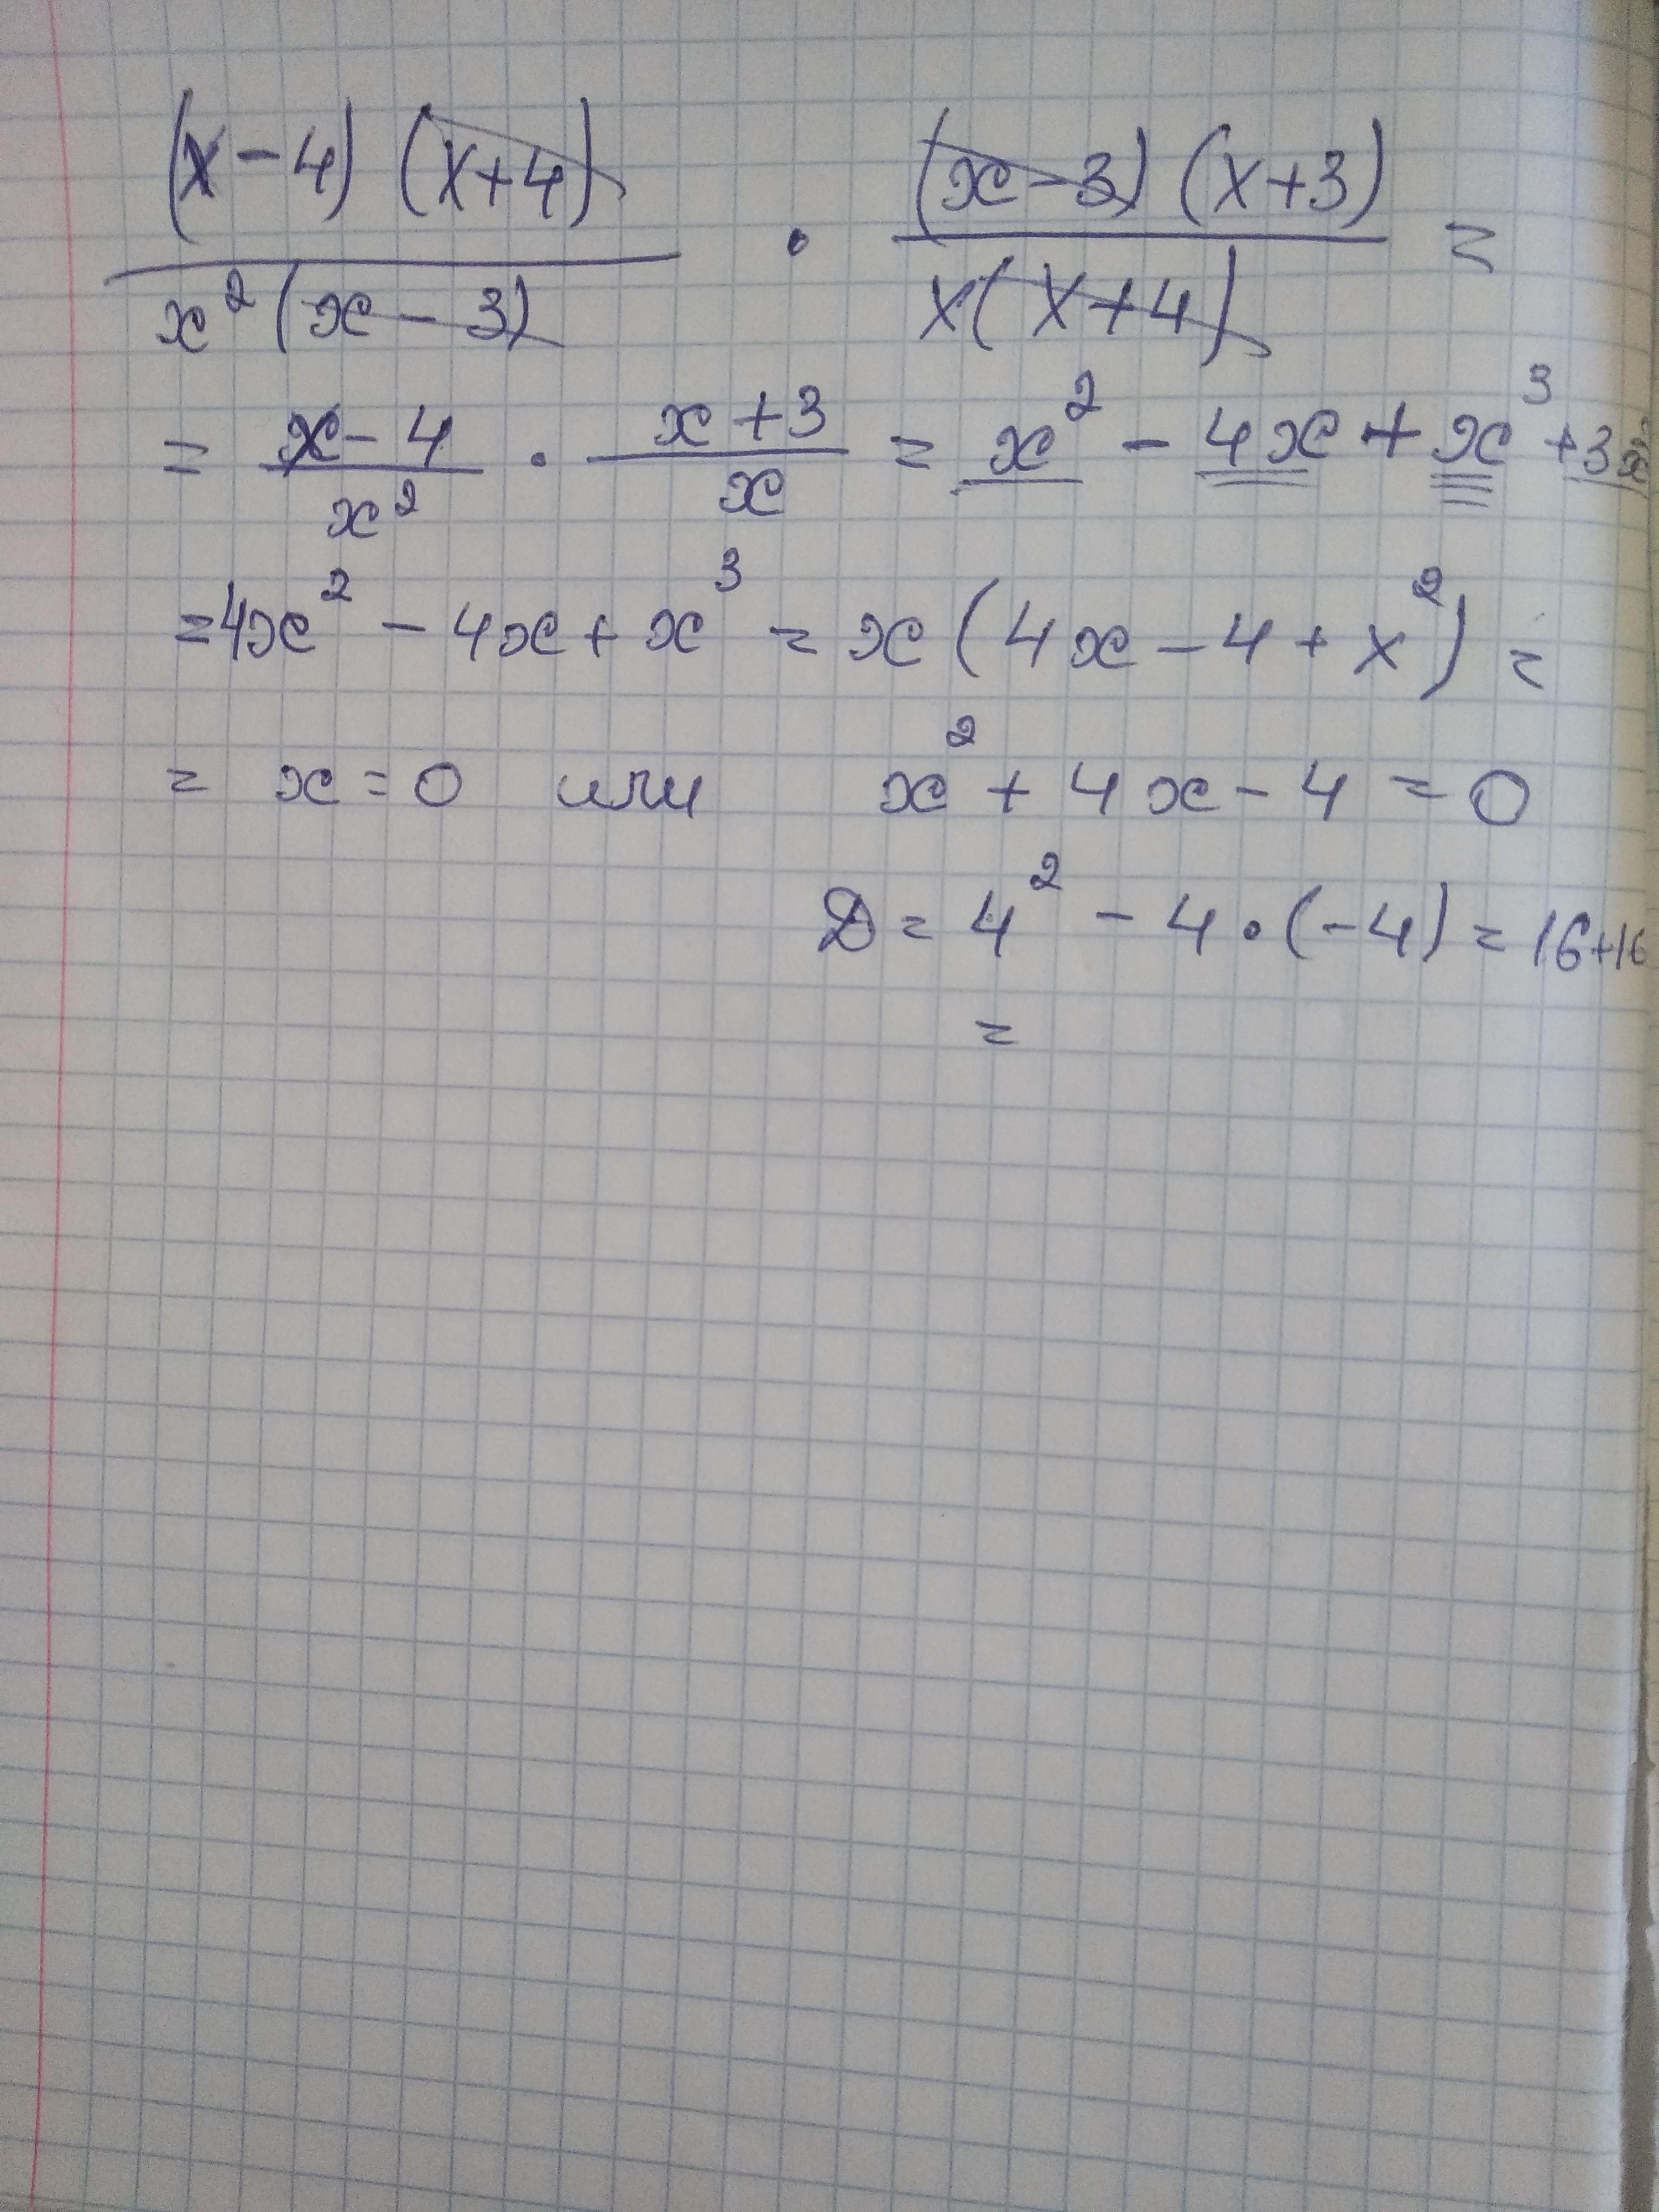 (x-4)(x+4) / x²(x-3) · (x-3)(x+3) / x(x+4) =
= x-4 / x² · x+3 / x = x² - 4x + x³ + 3x²
= 4x² - 4x + x³ = x(4x - 4 + x²) =
= x = 0 или x² + 4x - 4 = 0
D = 4² - 4 · (-4) = 16+16
=